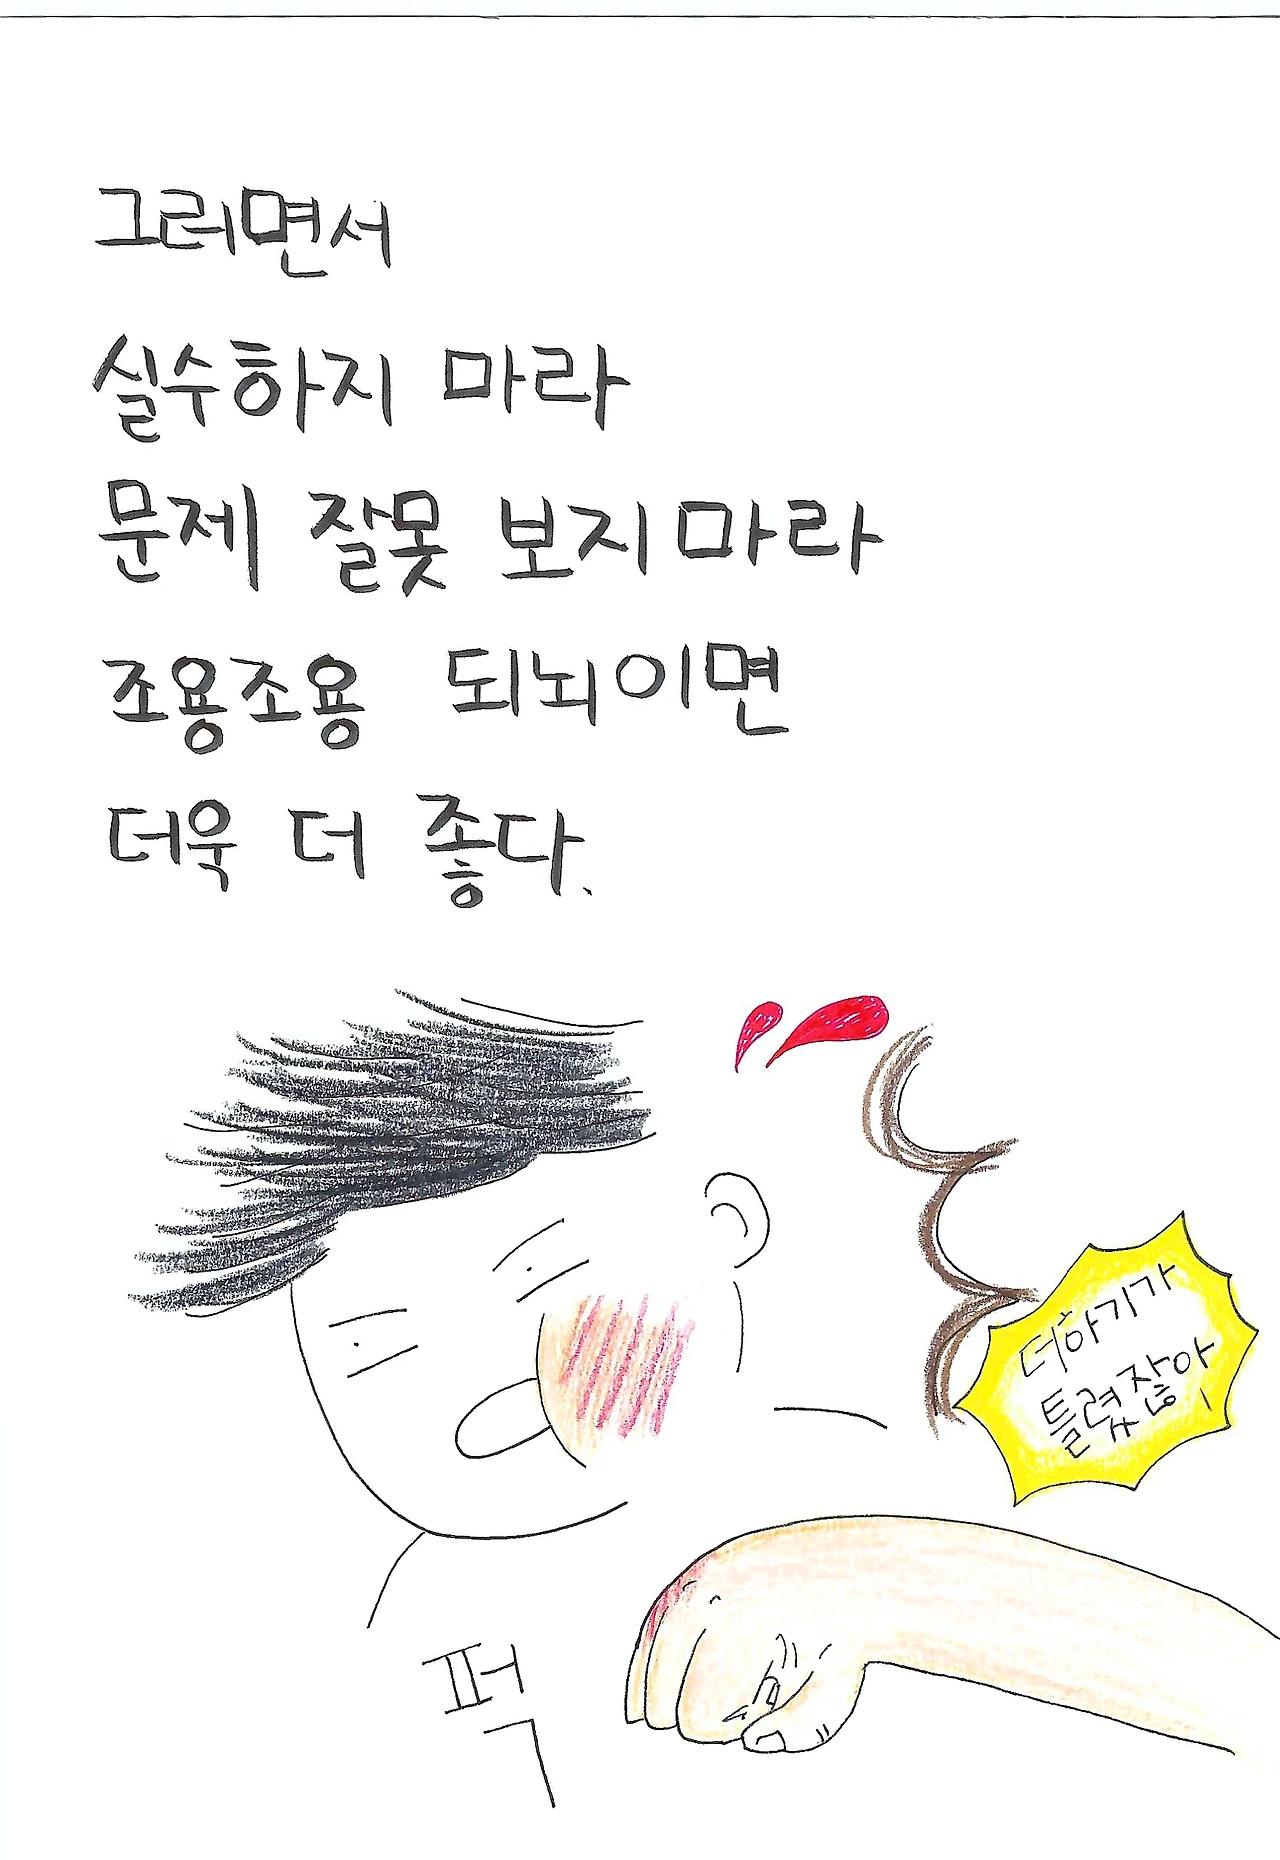 그러면서
실수하지 마라
문제 잘못 보지마라
조용조용 되뇌이면
더욱 더 좋다.
더하기가
틀렸잖아
퍽